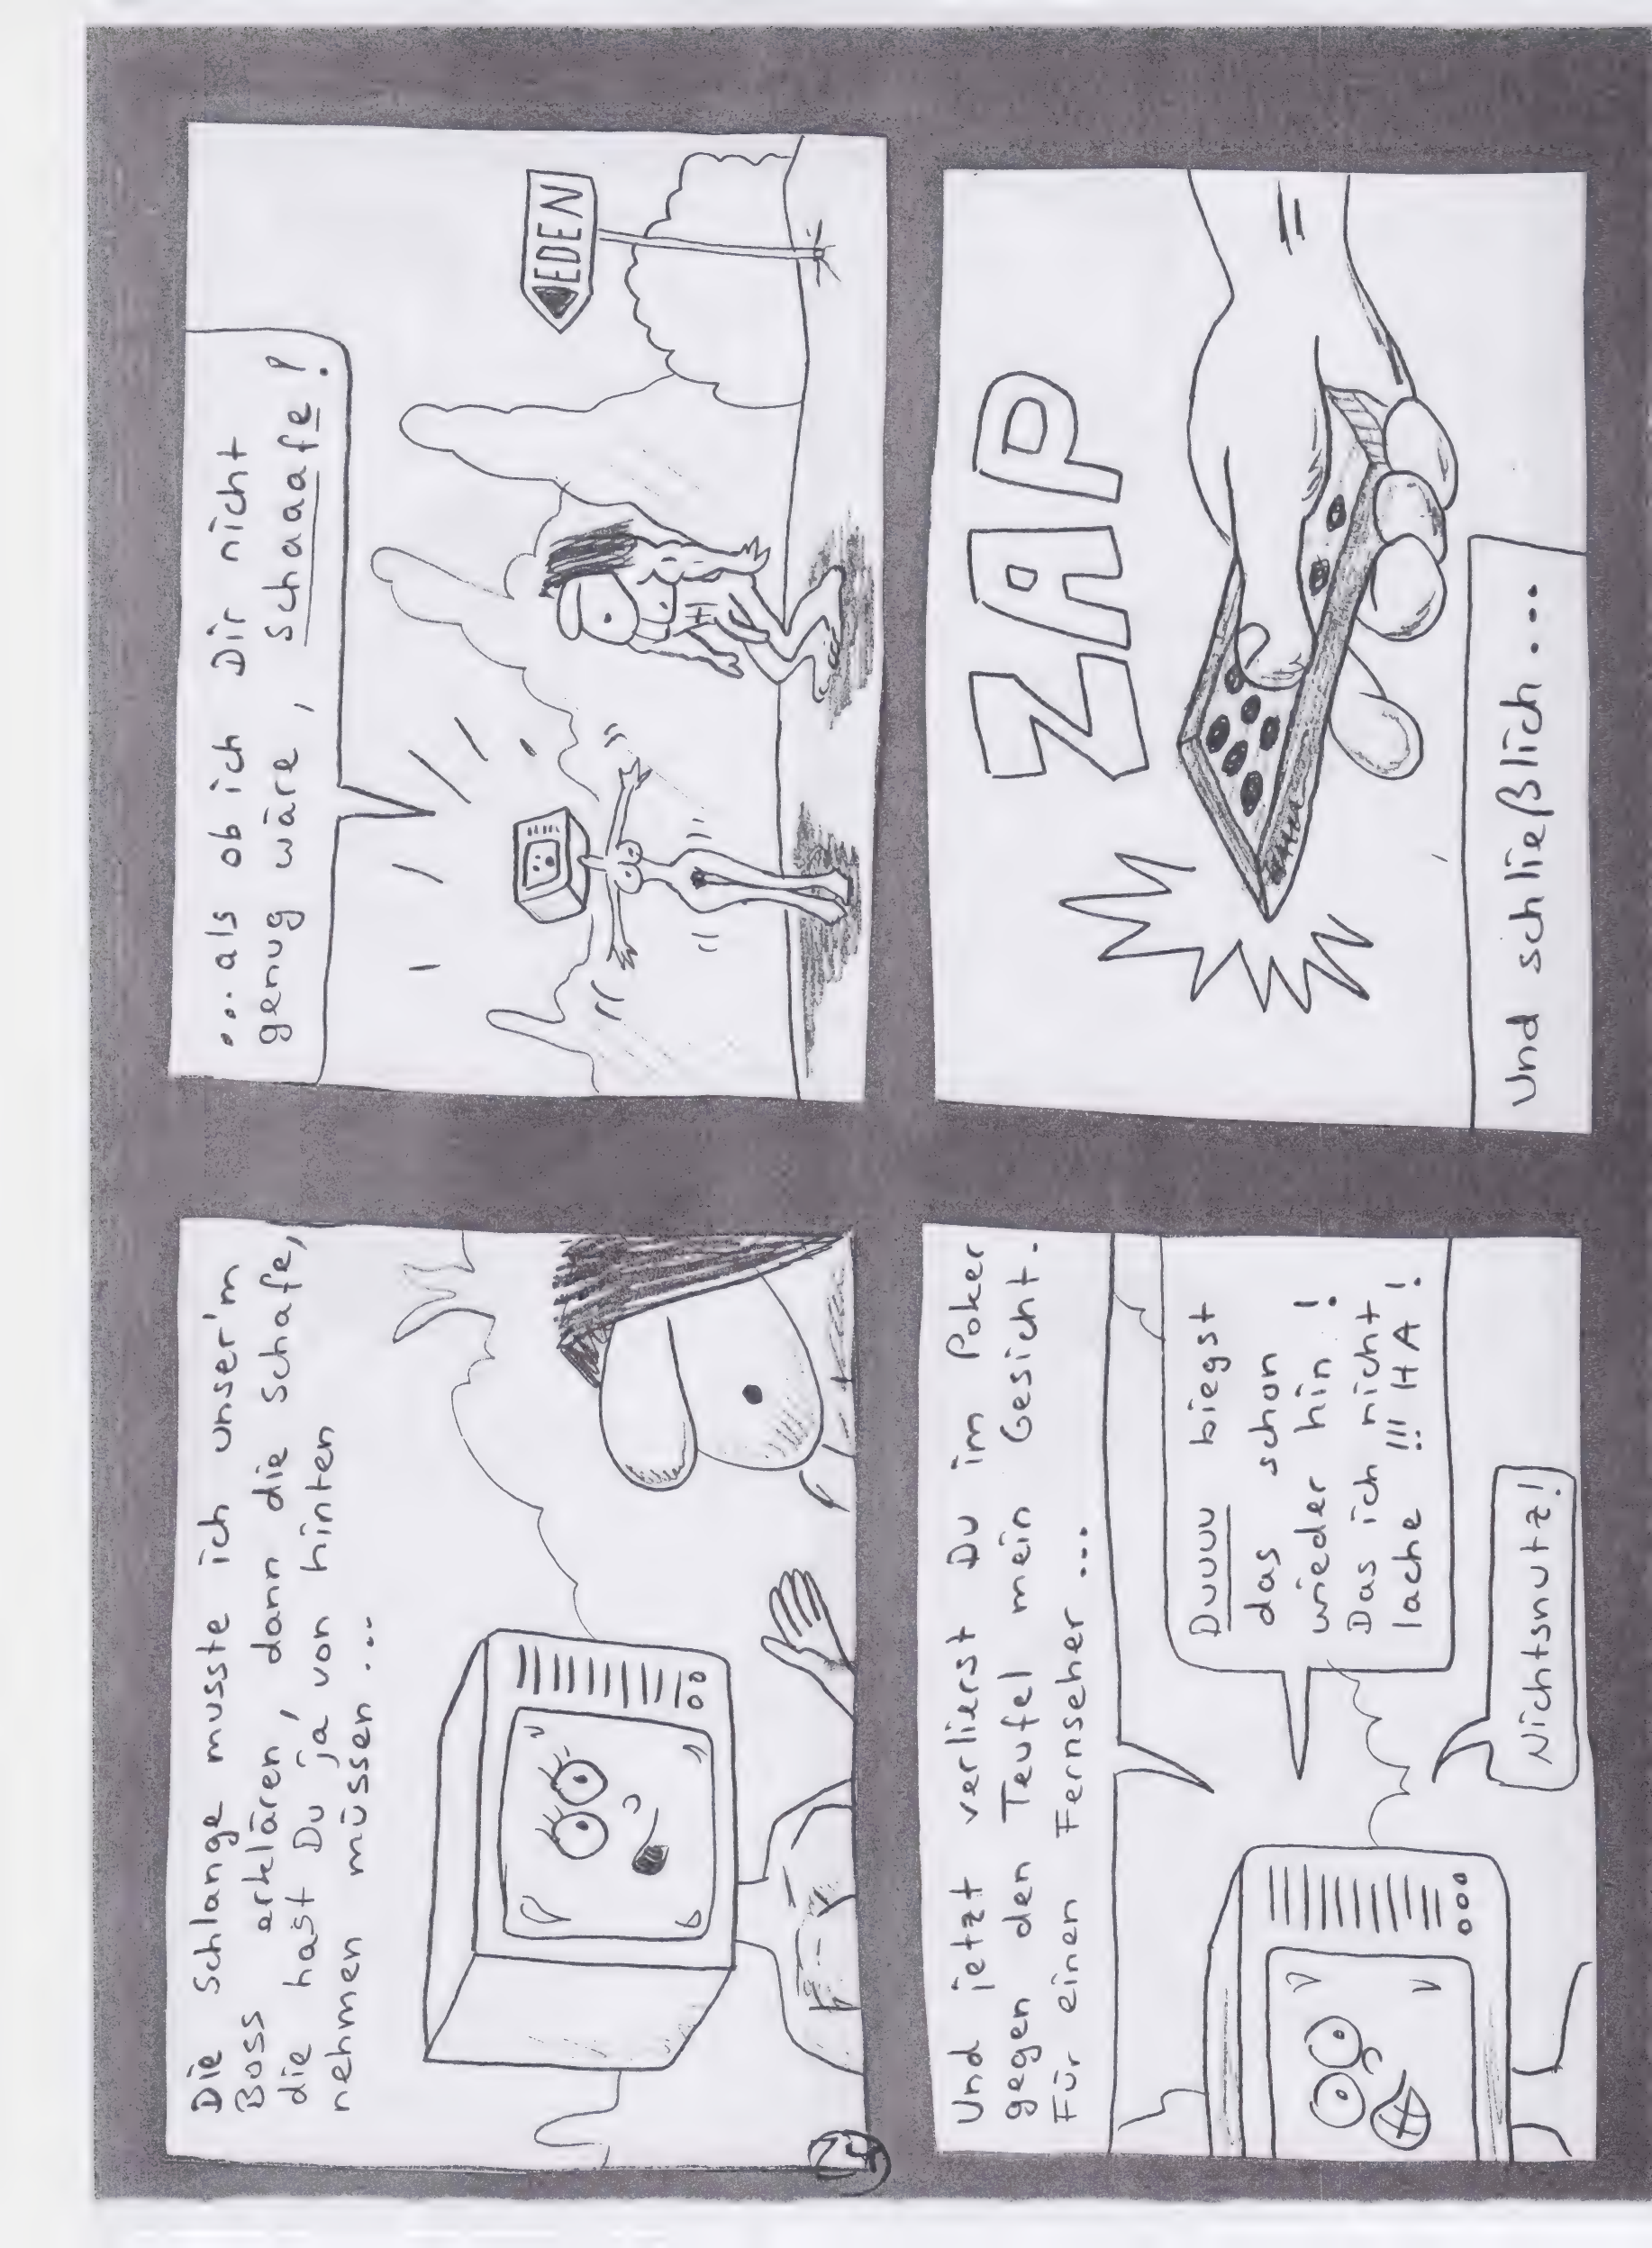 Die Schlange musste ich unser'm
Boss erklären, dann die Schafe,
die hast Du ja von hinten
nehmen müssen ...
... als ob ich Dir nicht
genug wäre, schaaafe!
EDEN
24
Und jetzt verlierst Du im Poker
gegen den Teufel mein Gesicht.
Für einen Fernseher ...
Duuuu biegst
das schon
wieder hin!
Das ich nicht
lache !!! HA!
Nichtsnutz!
ZAP
Und schließlich ...